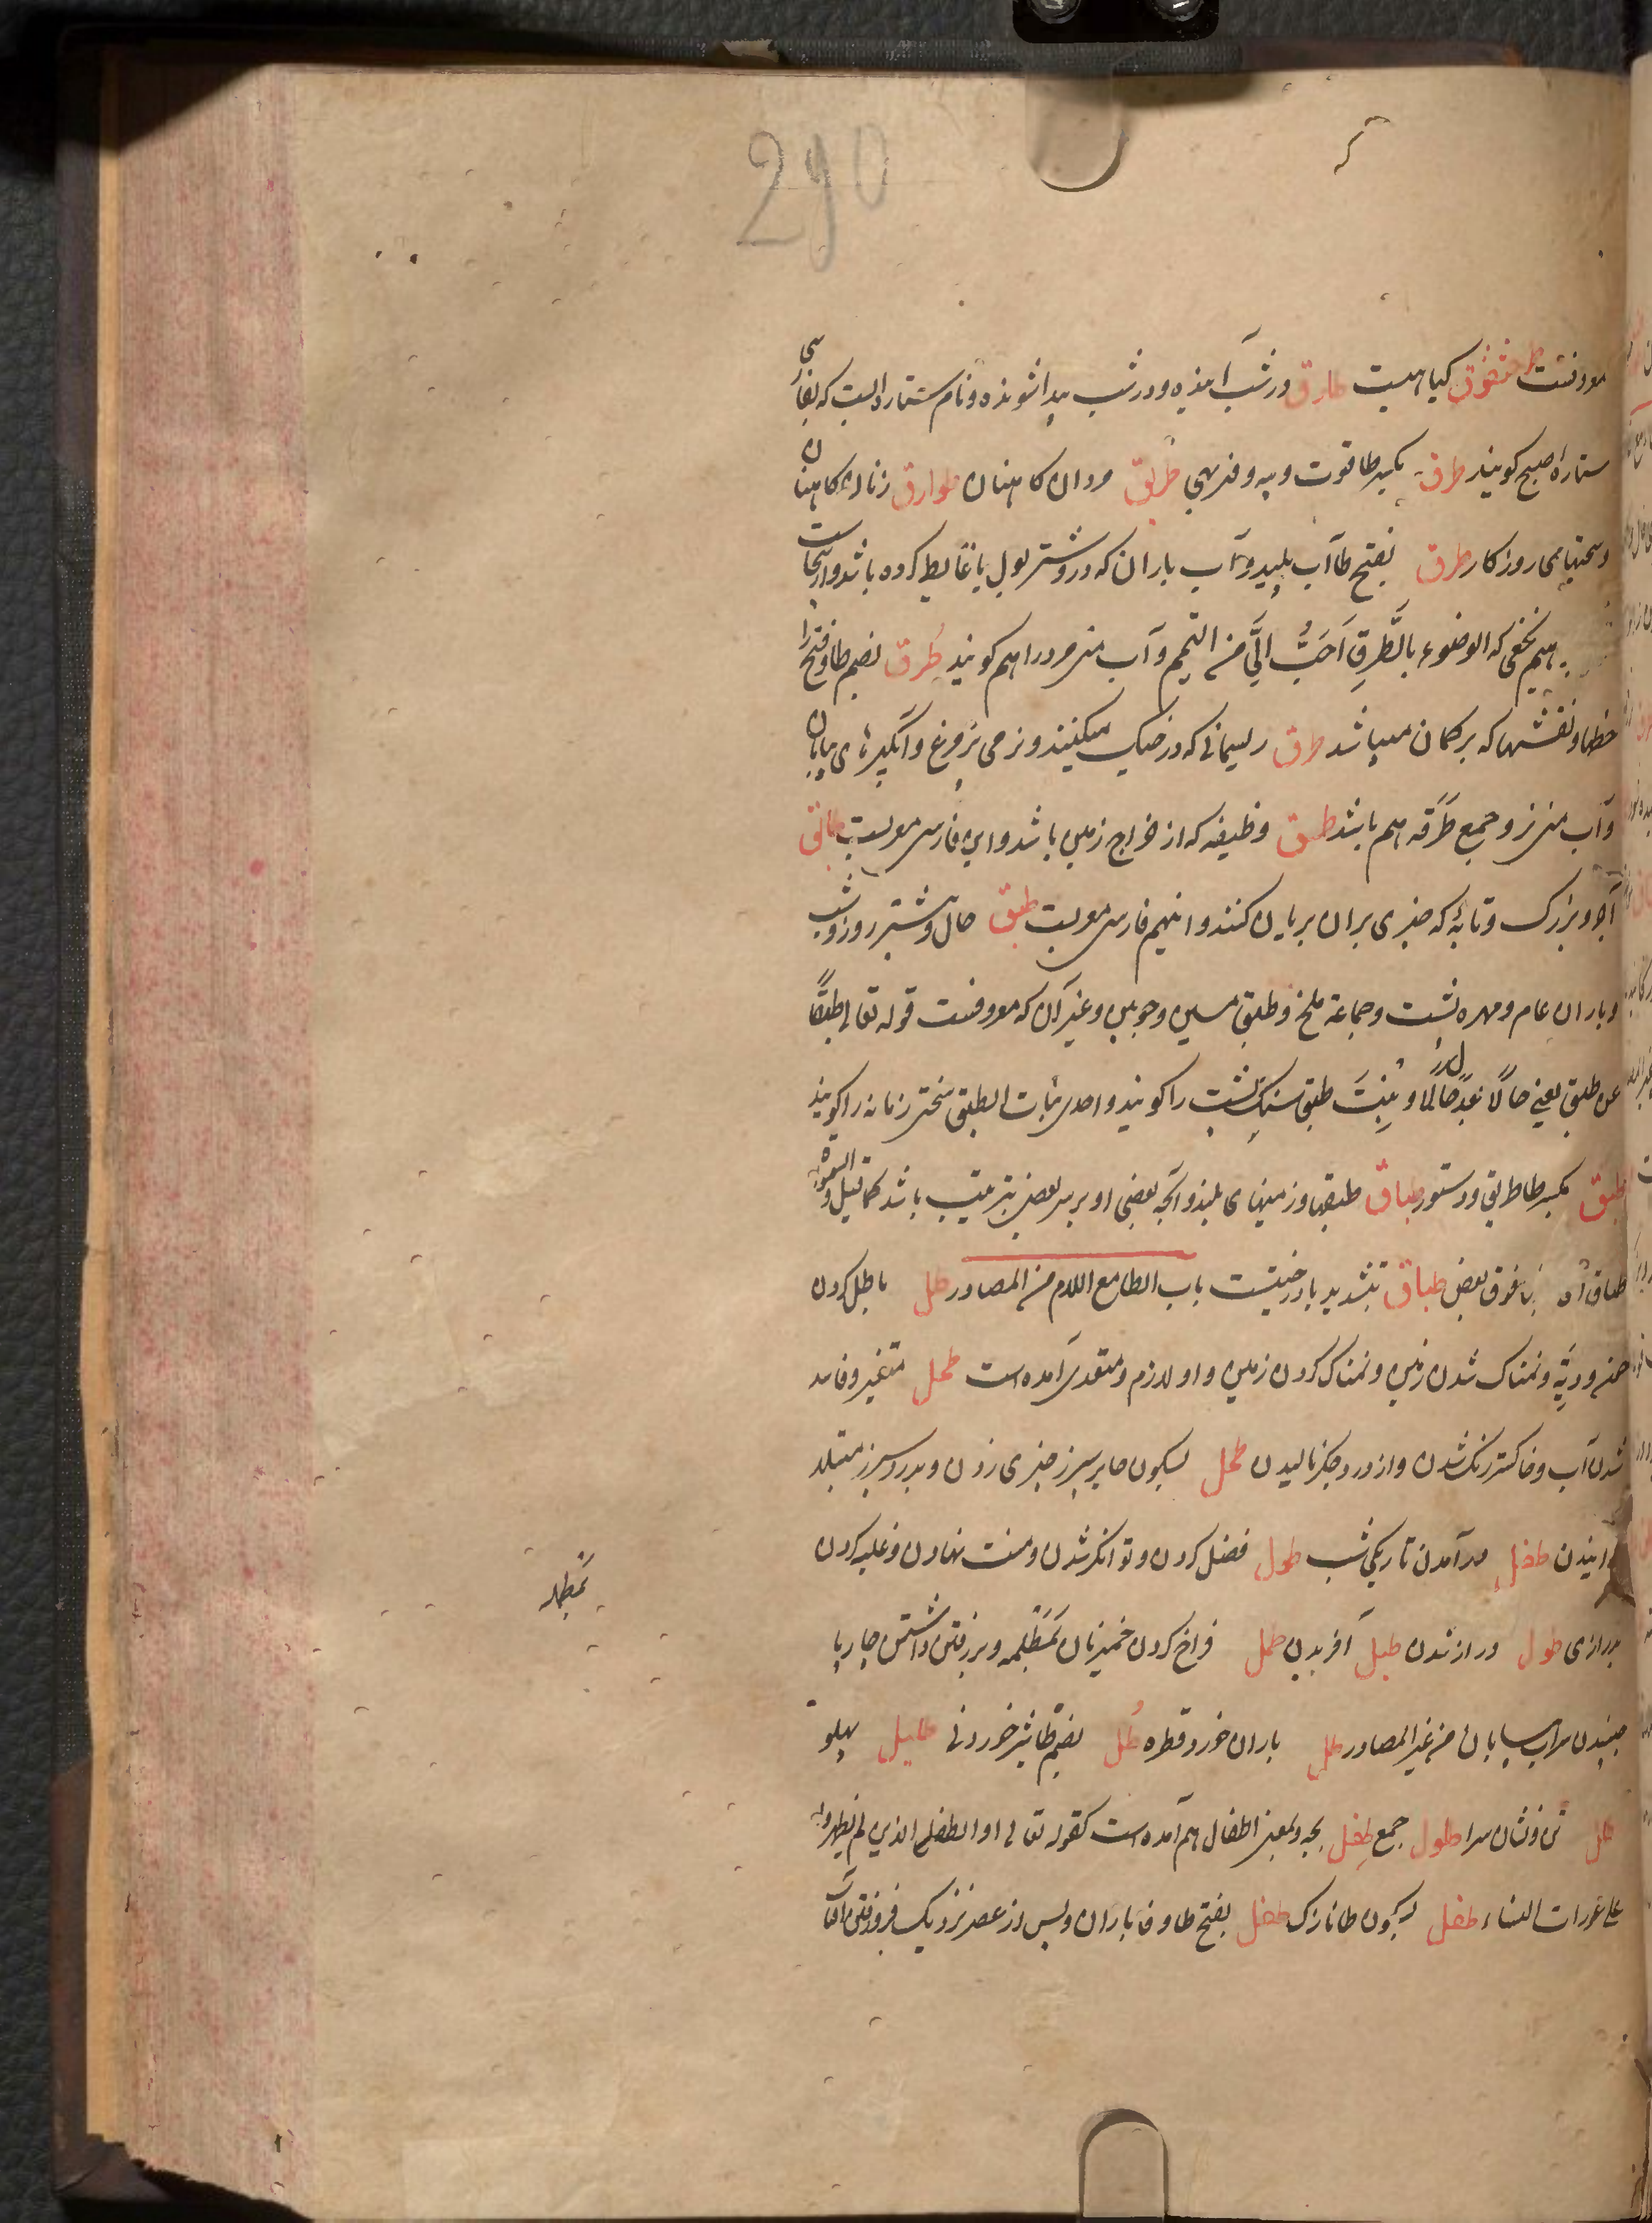 290
معروفست طرخشقوق کیاهیست طارق در شب آینده و در شب پیدا شونده و نام ستاره ایست که بفارسی
ستارهٔ صبح کویند طرق بکسر طا قوت و پیه و فربهی طراق مردان کاهنان طوارق زنان کاهنان
و سختیهای روزکار طرق بفتح طا آب پلید و آب باران که درو شتر بول یا غایط کرده باشد و ازینجاست
ابراهیم نخعی که الوضوء بالطَّرقِ اَحَبُّ الَیَّ من التیمم و آب منی مرد را هم کویند طُرق بضم طا و فتح را
خطها و نقشها که بر کمان میباشد طرق ریسمانی که در خیک میکنند و نرمی پر مرغ و آبگیرهای بیابان
و آب منی نر و جمع طَرَقه هم باشد طسق وظیفه که از خراج زمین باشد و این فارسی معربست طابق
آجر بزرک و تابهٔ که چیزی بران بریان کنند و اینهم فارسی معربست طبق حال و بیشتر روز و شب
و باران عام و مهره پشت و جماعة ملخ و طبق مسین و چوبین و غیر آن که معروفست قوله تعالی طبقًا
عن طبق یعنی حالًا بعد حال و بِنتَ طبق سنک پشت را کویند و احدی بنات الطبق سختی زمانه را کویند
طبق بکسر طا طریق و دستور طباق طبقها و زمینهای بلند و آنچه بعضی او بر سر بعضی بترتیب باشد کما قیل السموات
طباق ای بعضها فوق بعض طباق بتشدید با درختیست باب الطا مع اللام من المصادر طل باطل کردن
خون و دیَّه و نمناک شدن زمین و نمناک کردن زمین و او لازم و متعدی آمده است طحل متغیر و فاسد
شدن آب و خاکستر رنک شدن و از درد جکر نالیدن طحل بسکون حا بر سپرز چیزی زدن و بدرد سپرز مبتلا
کردانیدن طفل درآمدن تاریکی شب طول فضل کردن و توانکر شدن و منت نهادن و غلبه کردن
بدرازی طول دراز شدن طبل آفریدن طمل فراخ کردن خمیر نان بمِطَلمه و برفتن داشتن چارپا
جنبیدن سراب بیابان من غیر المصادر طل باران خورد قطره طُل بضم طا شیر خوردنی طایل پهلو
طلل تن و نشان سرا طلول جمع طِفل بچه و بمعنی اطفال هم آمده است کقوله تعالی او الطفل الذین لم یظهروا
علی عورات النساء طفل بسکون طا نازک طفل بفتح طا و فا باران و پس از عصر نزدیک فرو رفتن آفتاب
بمطلمه